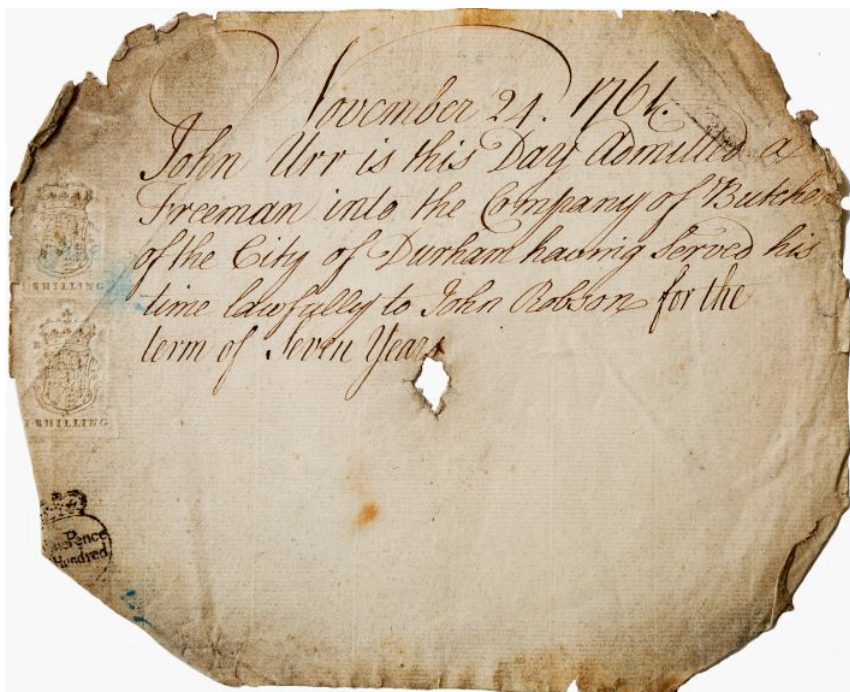 November 24. 1764.
John Urr is this Day Admitted a
Freeman into the Company of Butchers
of the City of Durham having Served his
time lawfully to John Robson for the
term of Seven Years
SHILLING
SHILLING
Pence
Hundred